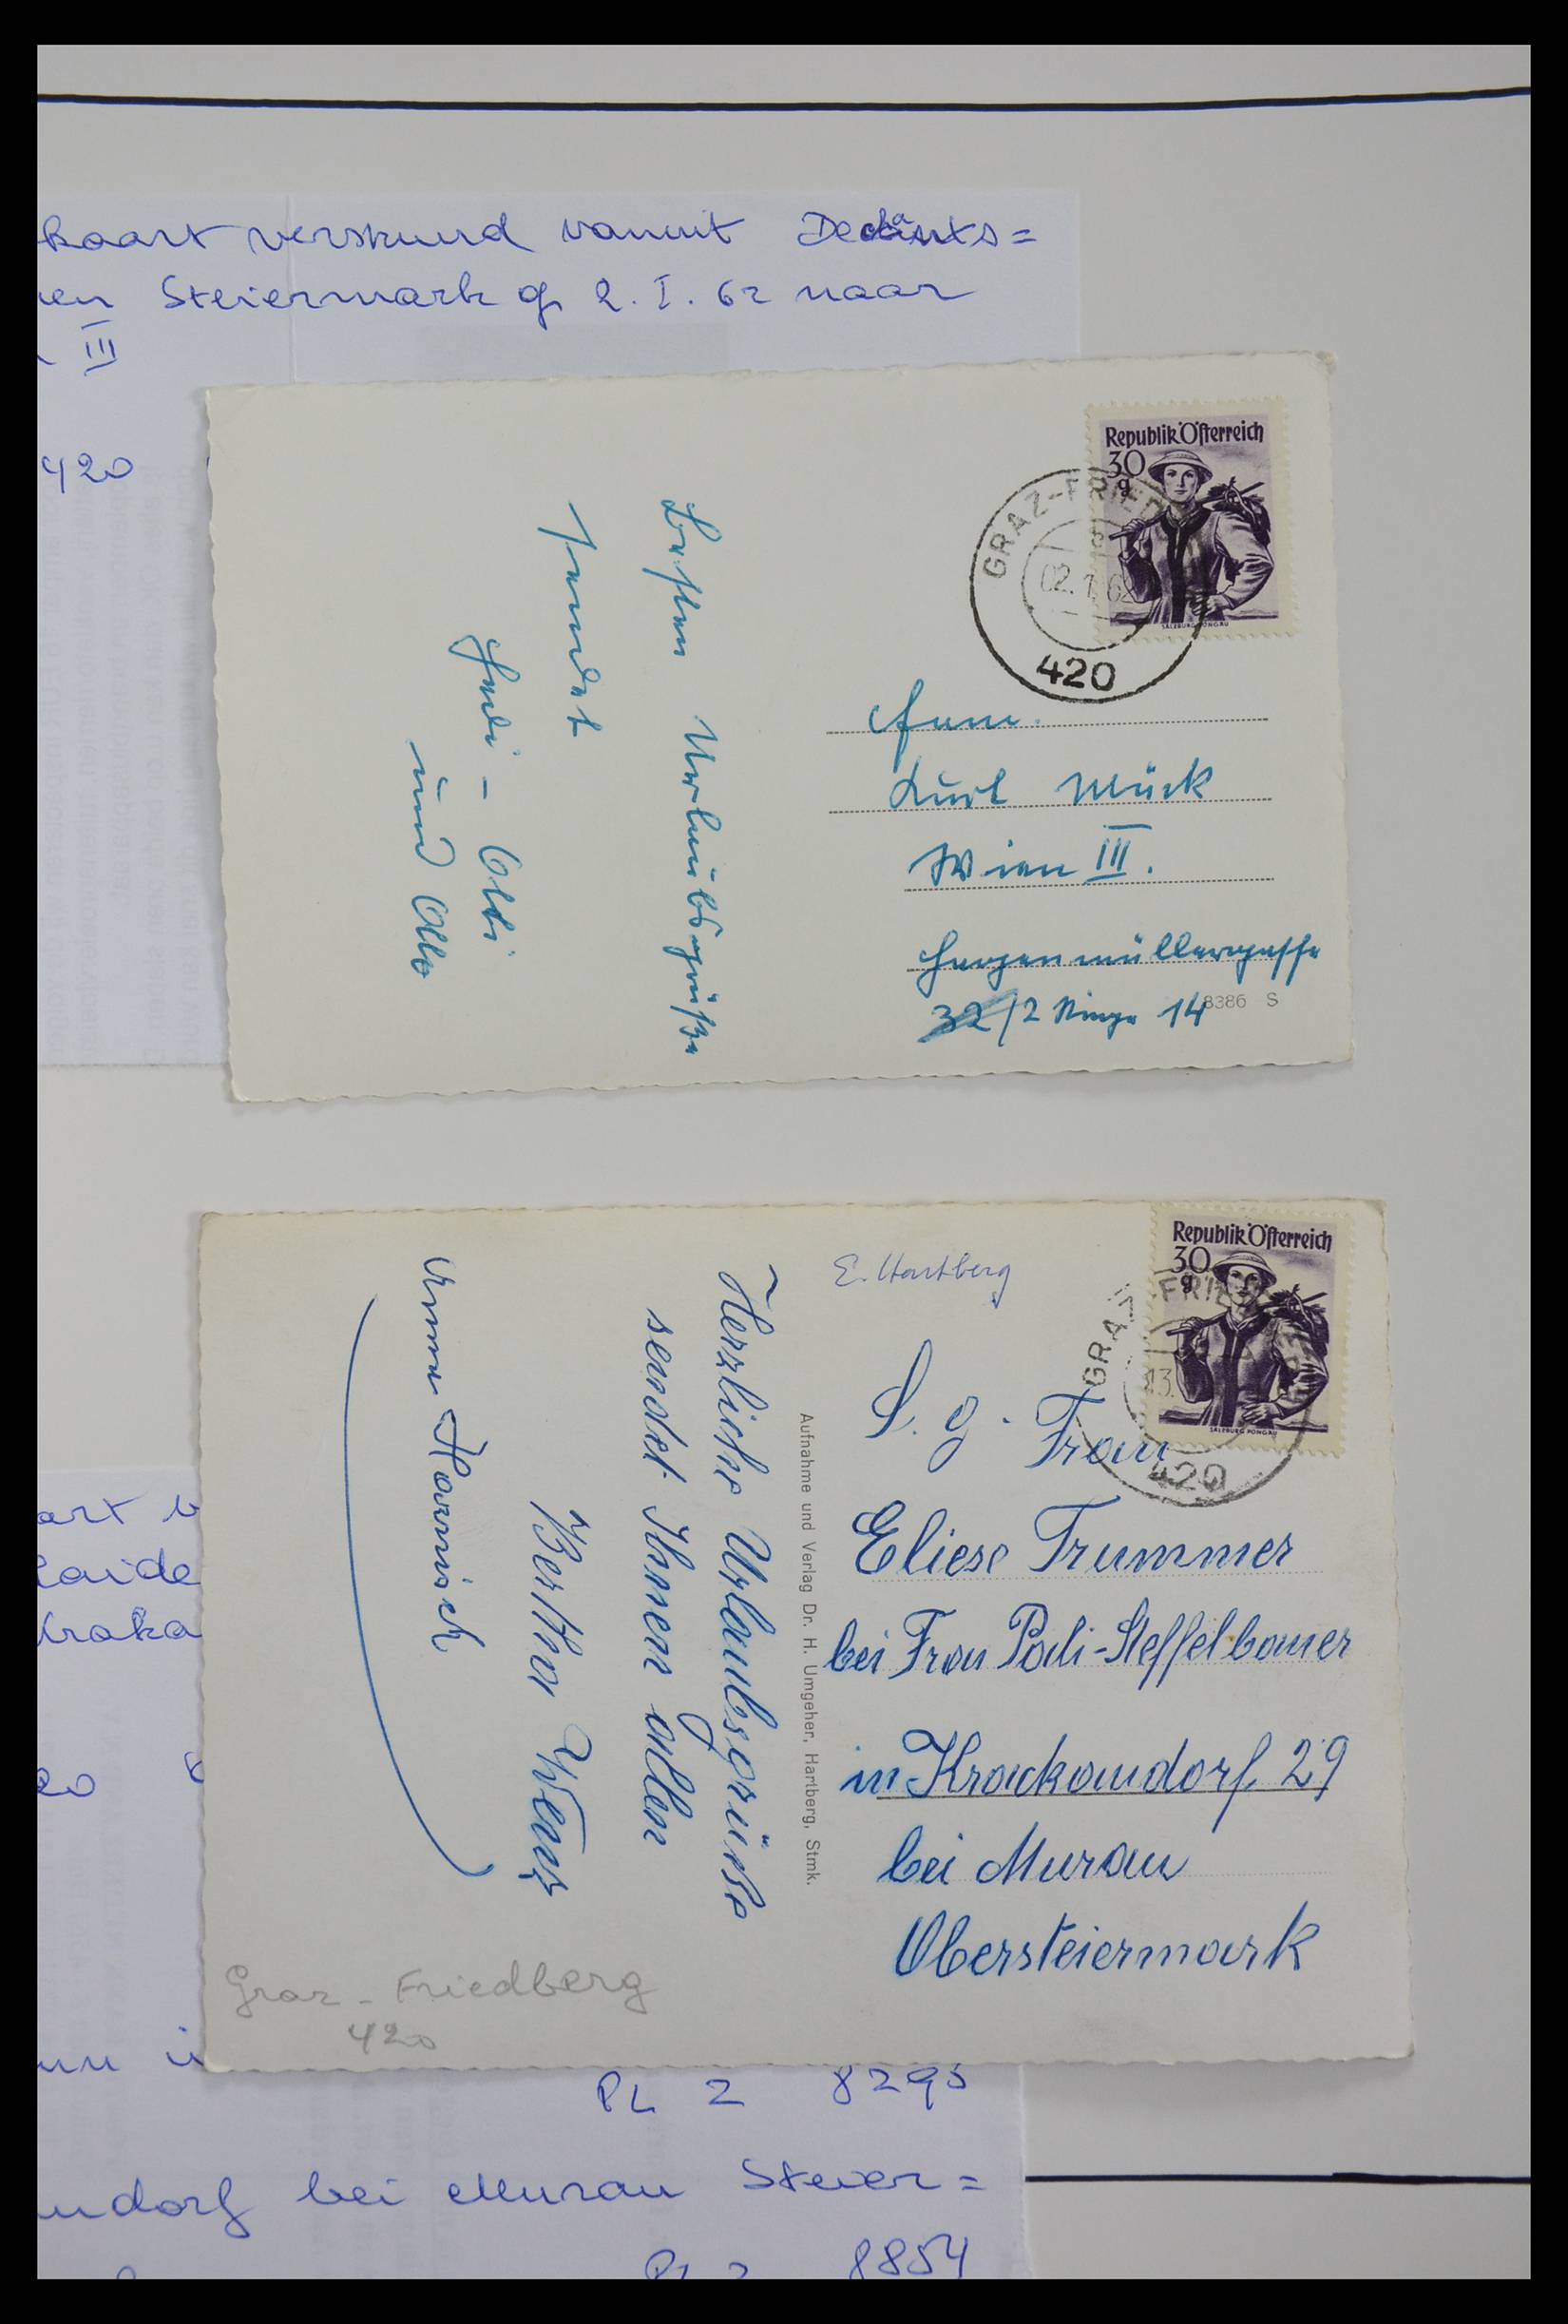 kaart verstuurd vanuit Dechants=
en Steiermark op 2. I. 62 naar
III
420
Republik Österreich
30
g
SALZBURG, PONGAU
GRAZ-FRIED
02. 1 62
420
Herrn
Kurt Mück
Wien III.
Hergenmüllergasse
32/2 Stiege 14
8386 S
Besten Urlaubsgrüße
sendet
Heidi - Otti
und Otto
Republik Österreich
30
g
SALZBURG, PONGAU
GRAZ-FRIED
13.
420
E. Hartberg
S. g. Frau
Eliese Trummer
bei Frau Pali-Steffelbauer
in Krackaudorf 29
bei Murau
Obersteiermark
Aufnahme und Verlag Dr. H. Umgeher, Hartberg, Stmk.
Herzliche Urlaubsgrüße
sendet Ihnen allen
Bertha Wenz
Anna Harnisch
Graz - Friedberg
420
art v
Laide
Kraka
20
PL 2 8295
ndorf bei Murau Steier=
PL 2 8854